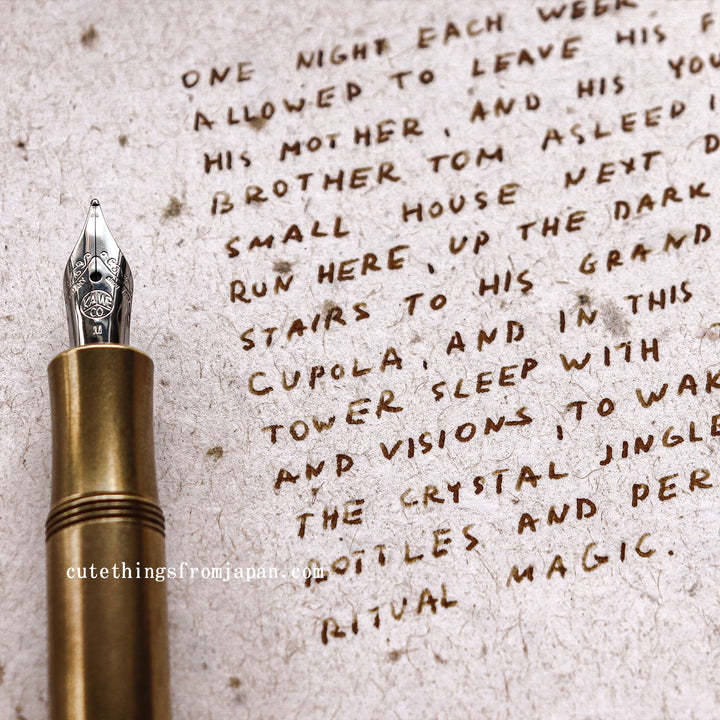 ONE NIGHT EACH WEEK
ALLOWED TO LEAVE HIS F
HIS MOTHER, AND HIS YOU
BROTHER TOM ASLEEP I
SMALL HOUSE NEXT D
RUN HERE, UP THE DARK
STAIRS TO HIS GRAND
CUPOLA, AND IN THIS
TOWER SLEEP WITH
AND VISIONS, TO WAK
THE CRYSTAL JINGLE
BOTTLES AND PER
RITUAL MAGIC.
KAWECO
cutethingsfromjapan.com